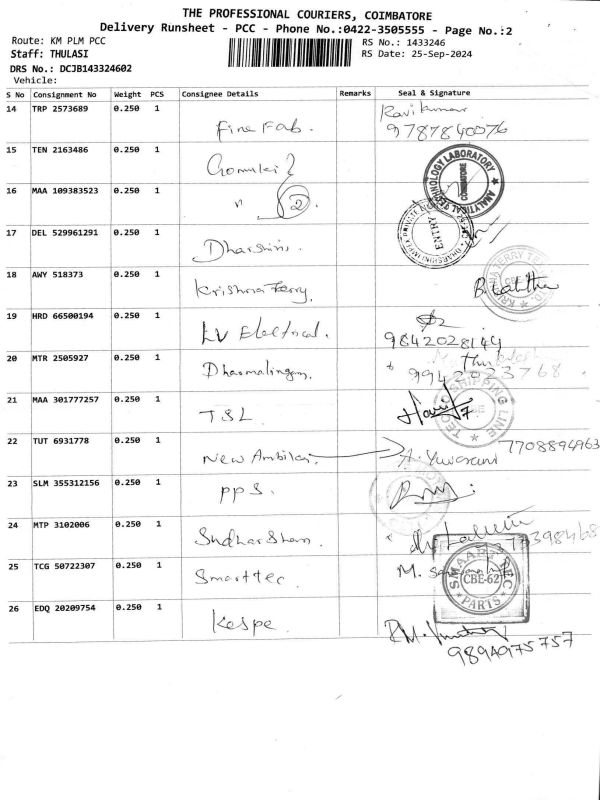 THE PROFESSIONAL COURIERS, COIMBATORE
Delivery Runsheet - PCC - Phone No.:0422-3505555 - Page No.:2
Route: KM PLM PCC
RS No.: 1433246
Staff: THULASI
RS Date: 25-Sep-2024
DRS No.: DCJB143324602
Vehicle:
S No Consignment No Weight PCS Consignee Details Remarks Seal & Signature
14 TRP 2573689 0.250 1 Fine Fab. Ravikumar
9787840076
15 TEN 2163486 0.250 1
ANALYTICAL TECHNOLOGY LABORATORY
COIMBATORE
16 MAA 109383523 0.250 1 " 2
17 DEL 529961291 0.250 1 Dharshini
ENTRY
18 AWY 518373 0.250 1 Krishna Terry.
19 HRD 66500194 0.250 1 LV Electrical.
9842028144
20 MTR 2505927 0.250 1 Dharmalingam.
9942023768
21 MAA 301777257 0.250 1 TSL
SHIPPING LINE
22 TUT 6931778 0.250 1 New Ambikai. A. Yuvarani 7708894963
23 SLM 355312156 0.250 1 PPS.
24 MTP 3102006 0.250 1 Sudharshan.
25 TCG 50722307 0.250 1 Smarttec M.
SMAART TEC
CBE-62
PARTS
26 EDQ 20209754 0.250 1 Kaspe.
9894975757